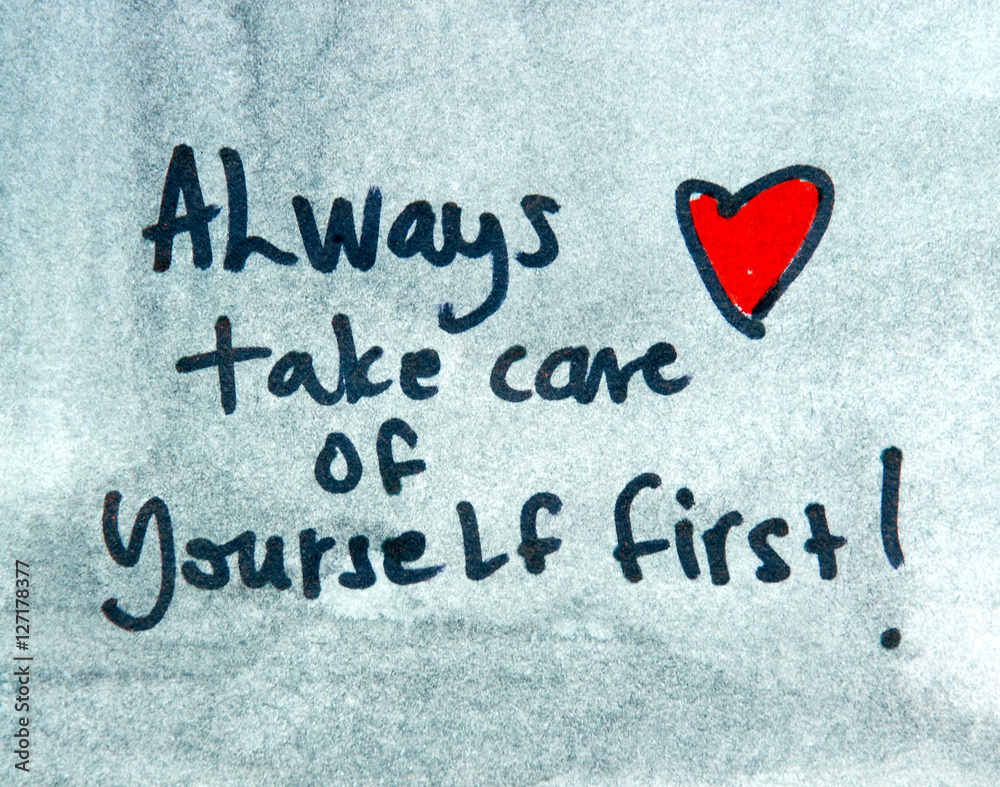 Always
take care
of
yourself first!
Adobe Stock | #127178377